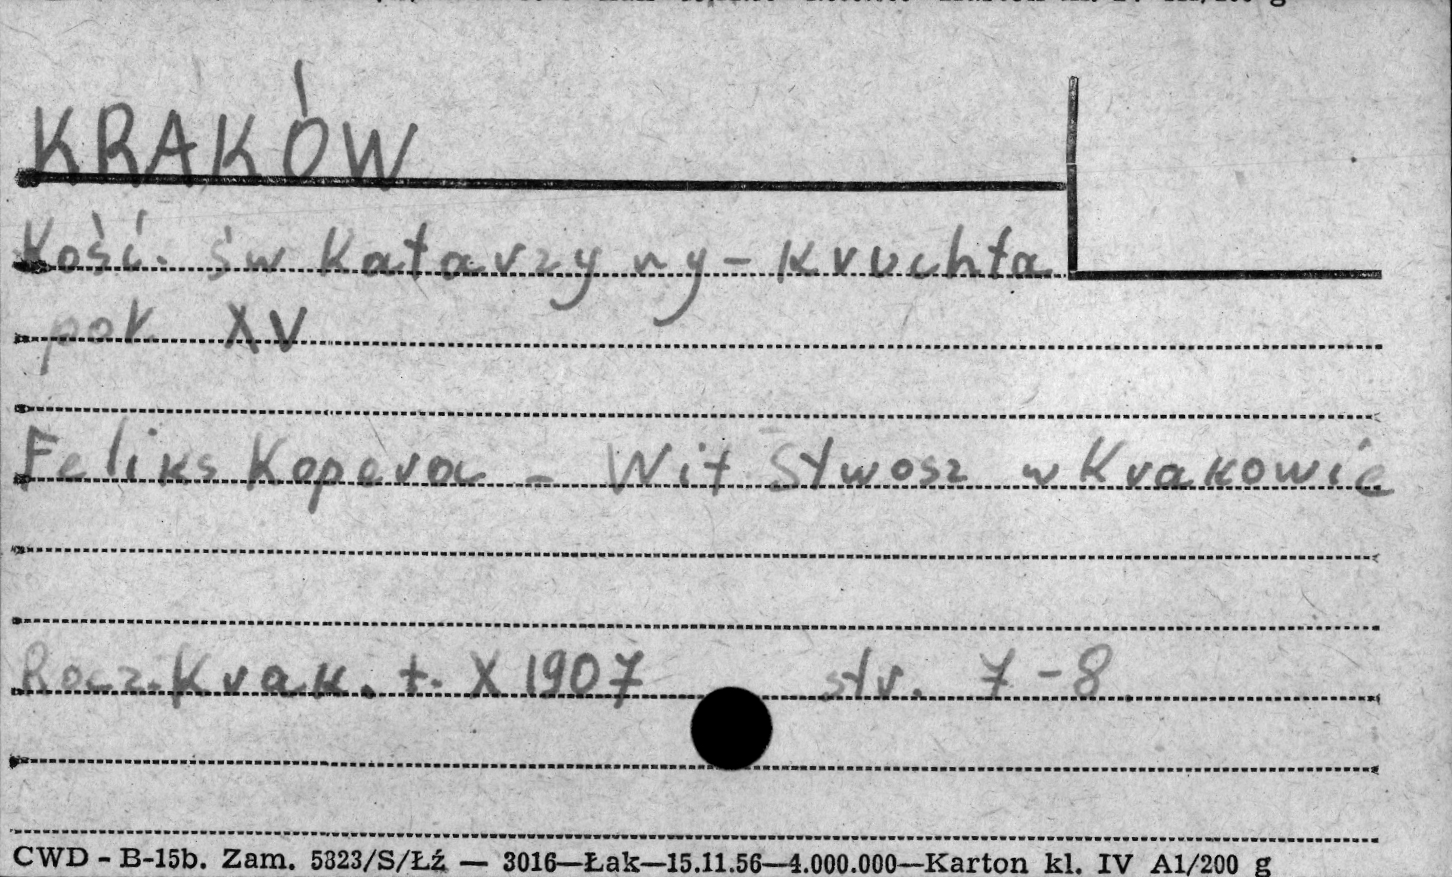 KRAKÓW
Kość. św Katarzyny - Kruchta
poł. XV
Feliks Kopera - Wit Stwosz w Krakowie
Rocz. Krak. t. X 1907 str. 7-8.
CWD - B-15b. Zam. 5823/S/Łź — 3016—Łak—15.11.56—4.000.000—Karton kl. IV A1/200 g